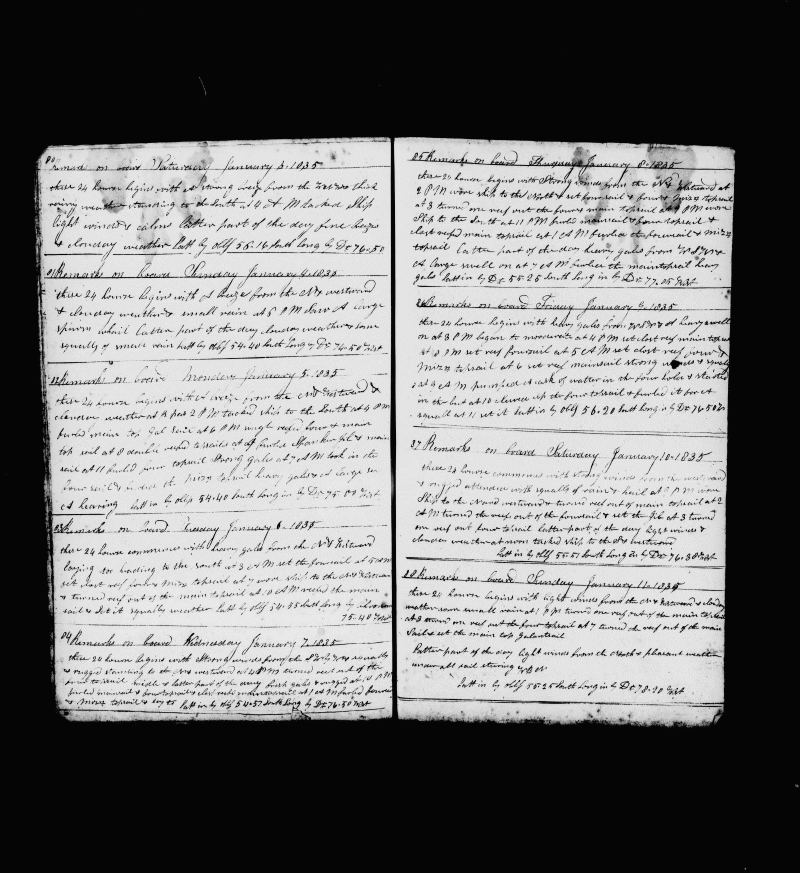 80
remarks on board Saturday January 3. 1835
these 24 hours begins with A strong breeze from the thick
rainy weather standing to the South at 4 A M tacked Ship
light winds & calms latter part of the day fine breeze
& cloudday weather Latt by obsf 55.16 South Long by Dr 76.50
81 Remarks on board Sunday January 4. 1835
these 24 hours begins with A breeze from the N & westward
& cloudday weather & small rain at 5 P M Saw A large
spirm whail Latter part of the day cloudday weather & some
squalls of small rain Latt by obsf 54.40 South Long by Dr 76.50 West
82 Remarks on board Monday January 5. 1835
these 24 hours begins with A breeze from the N & Westward &
cloudday weather at half past 2 P M tacked ship to the South at 4 P M
furled main top Gal sail at 6 P M reefed fore & main
top sail at 8 double reefed topsails at furled Spanker jib & main
sail at 11 furled fore topsail Strong gales at 7 A M took in the
four sail & the Mizn topsail heavy gales & A large sea
A heaving Latt in by obsf 54.40 South Long in by Dr 75.09 West
83 Remarks on board Tuesday January 6. 1835
these 24 hours commences with heavy gales from the N & Westward
laying too heading to the South at 3 A M set the foursail at 5 A M
set clost reef fore & Mizn topsail at 7 wore Ship to the N & Westward
& turned reef out of the main topsail at 10 A M reefed the main
sail & set it squally weather Latt by obsf 54.55 South Long by
75.40 West
84 Remarks on board Wednesday January 7. 1835
these 24 hours begins with Strong winds from the squally
& rugged standing to the N & westward at 4 P M turned reef out of the
four topsail latter part of the day fresh gales & rugged at 10 P M
furled mainsail & foretopsail & clost reefed maintopsail at 1 A M furled foursail
& Mizn topsail & lay to Latt in by obsf 54.57 South Long by Dr 76.50 West
85 Remarks on board Thursday January 8. 1835
these 24 hours begins with Strong winds from the N & Westward at
2 P M wore ship to the North & set four sail & four & Mizn topsail
at 3 turned one reef out the four & main topsail at 8 P M wore
Ship to the South at 11 P M furled mainsail & four topsail &
clost reefed main topsail at 1 A M furled the foursail & mizn
topsail Latter part of the day heavy gales from
A large swell on at 7 A M furled the maintopsail heavy
gales Latt in by Dr 55.25 South Long in by Dr 77.05 West
86 Remarks on board Friday January 9. 1835
these 24 hours begins with heavy gales from & heavy swell
on at 3 P M began to moderate at 4 P M set clost reef main topsail
at 8 P M set reef foursail at 5 A M set clost reef four &
Mizn topsail at 6 set reef mainsail strong winds & squally
at 8 A M pumped A cask of water in the four hold & started
in the last at 10 clewed up the four topsail & furled it for A
squall at 11 set it Latt in by obsf 56.20 South Long by Dr 76.50 W
87 Remarks on board Saturday January 10. 1835
these 24 hours commences with strong winds from the westward
& rugged attended with squalls of rain & hail at 8 P M wore
Ship to the N and westward & turned reef out of main topsail at 2
A M turned the reef out of the foursail & set the jib at 3 turned
one reef out four topsail latter part of the day light winds &
cloudday weather at noon tacked ship to the S & westward
Latt in by obsf 55.51 South Long in by Dr 76.38 West
88 Remarks on board Sunday January 11. 1835
these 24 hours begins with light winds from the N & Westward & cloudy
weather some small rain at 1 P M turned one reef out of the main topsail
at 3 turned one reef out the four topsail at 7 turned the reef out of the main
Sail & set the main top galentsail
Latter part of the day light winds from the North & pleasant weather
under all sail stering
Latt in by obsf 55.25 South Long in by Dr 78.20 West